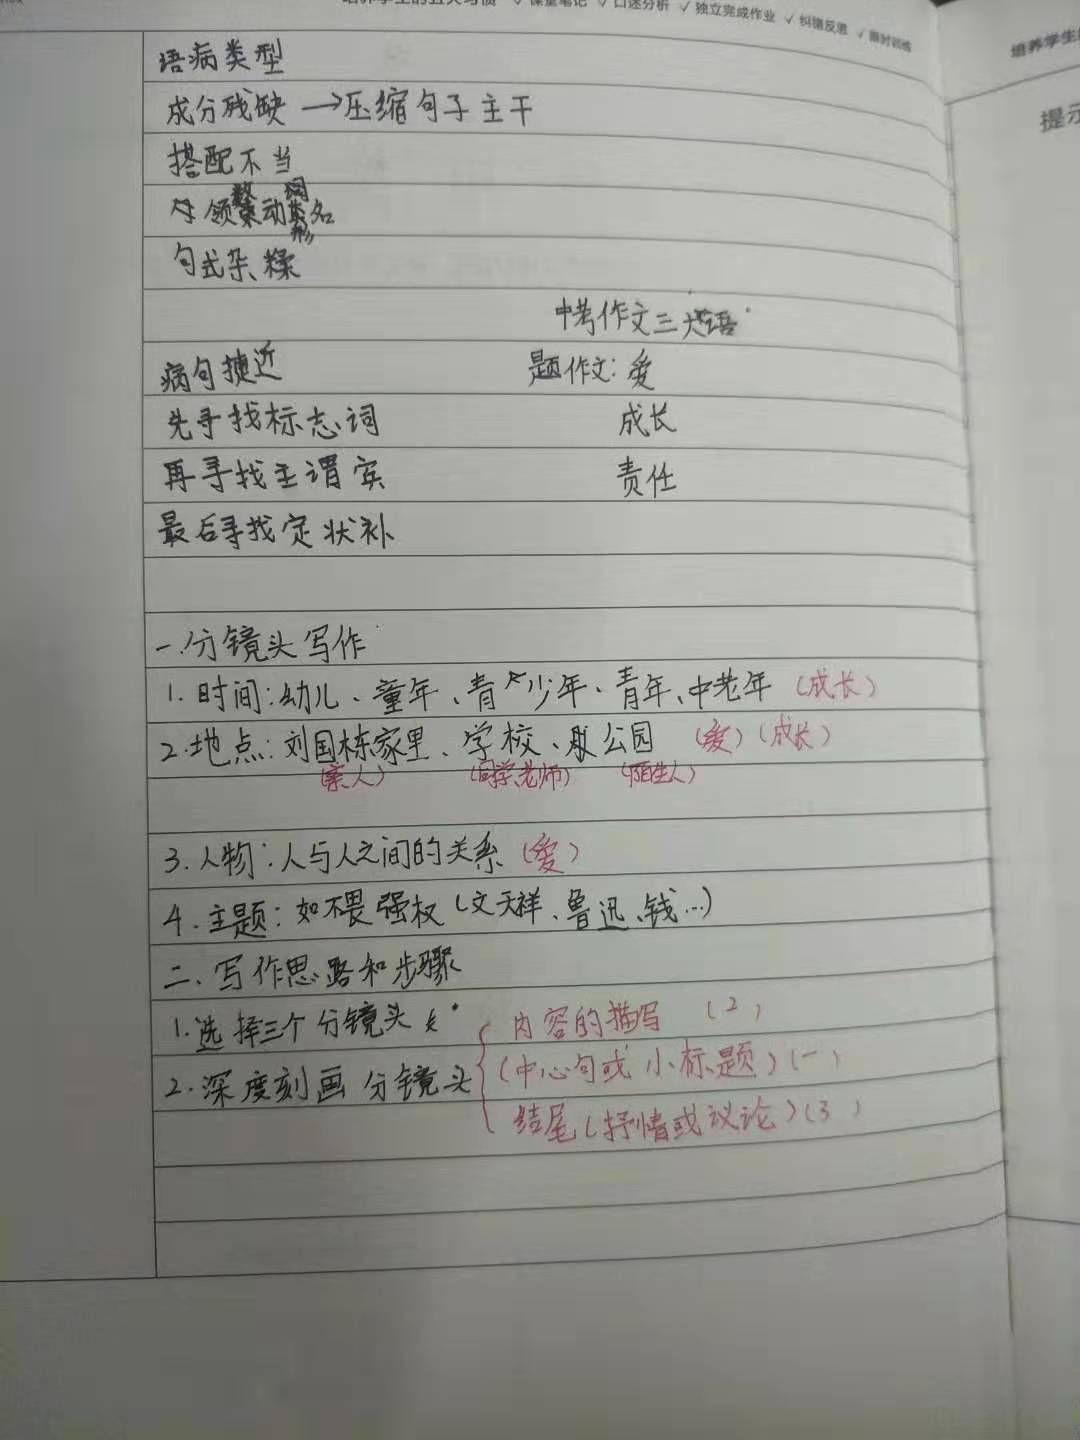 培养学生的五大习惯 ✓课堂笔记 ✓口述分析 ✓独立完成作业 ✓纠错反思 ✓限时训练
培养学生
提示
语病类型
成分残缺→压缩句子主干
搭配不当
句式杂糅
中考作文三大
病句捷近
题作文:爱
先寻找标志词
成长
再寻找主谓宾
责任
最后寻找定状补
一.分镜头写作
1.时间:幼儿、童年、青少年、青年、中老年(成长)
2.地点:刘国栋家里、学校、公园 (爱)(成长)
(亲人) (同学老师) (陌生人)
3.人物:人与人之间的关系(爱)
4.主题:如不畏强权(文天祥、鲁迅、钱…)
二.写作思路和步骤
1.选择三个分镜头
内容的描写 (2)
2.深度刻画分镜头
(中心句或小标题)(一)
结尾(抒情或议论)(3)